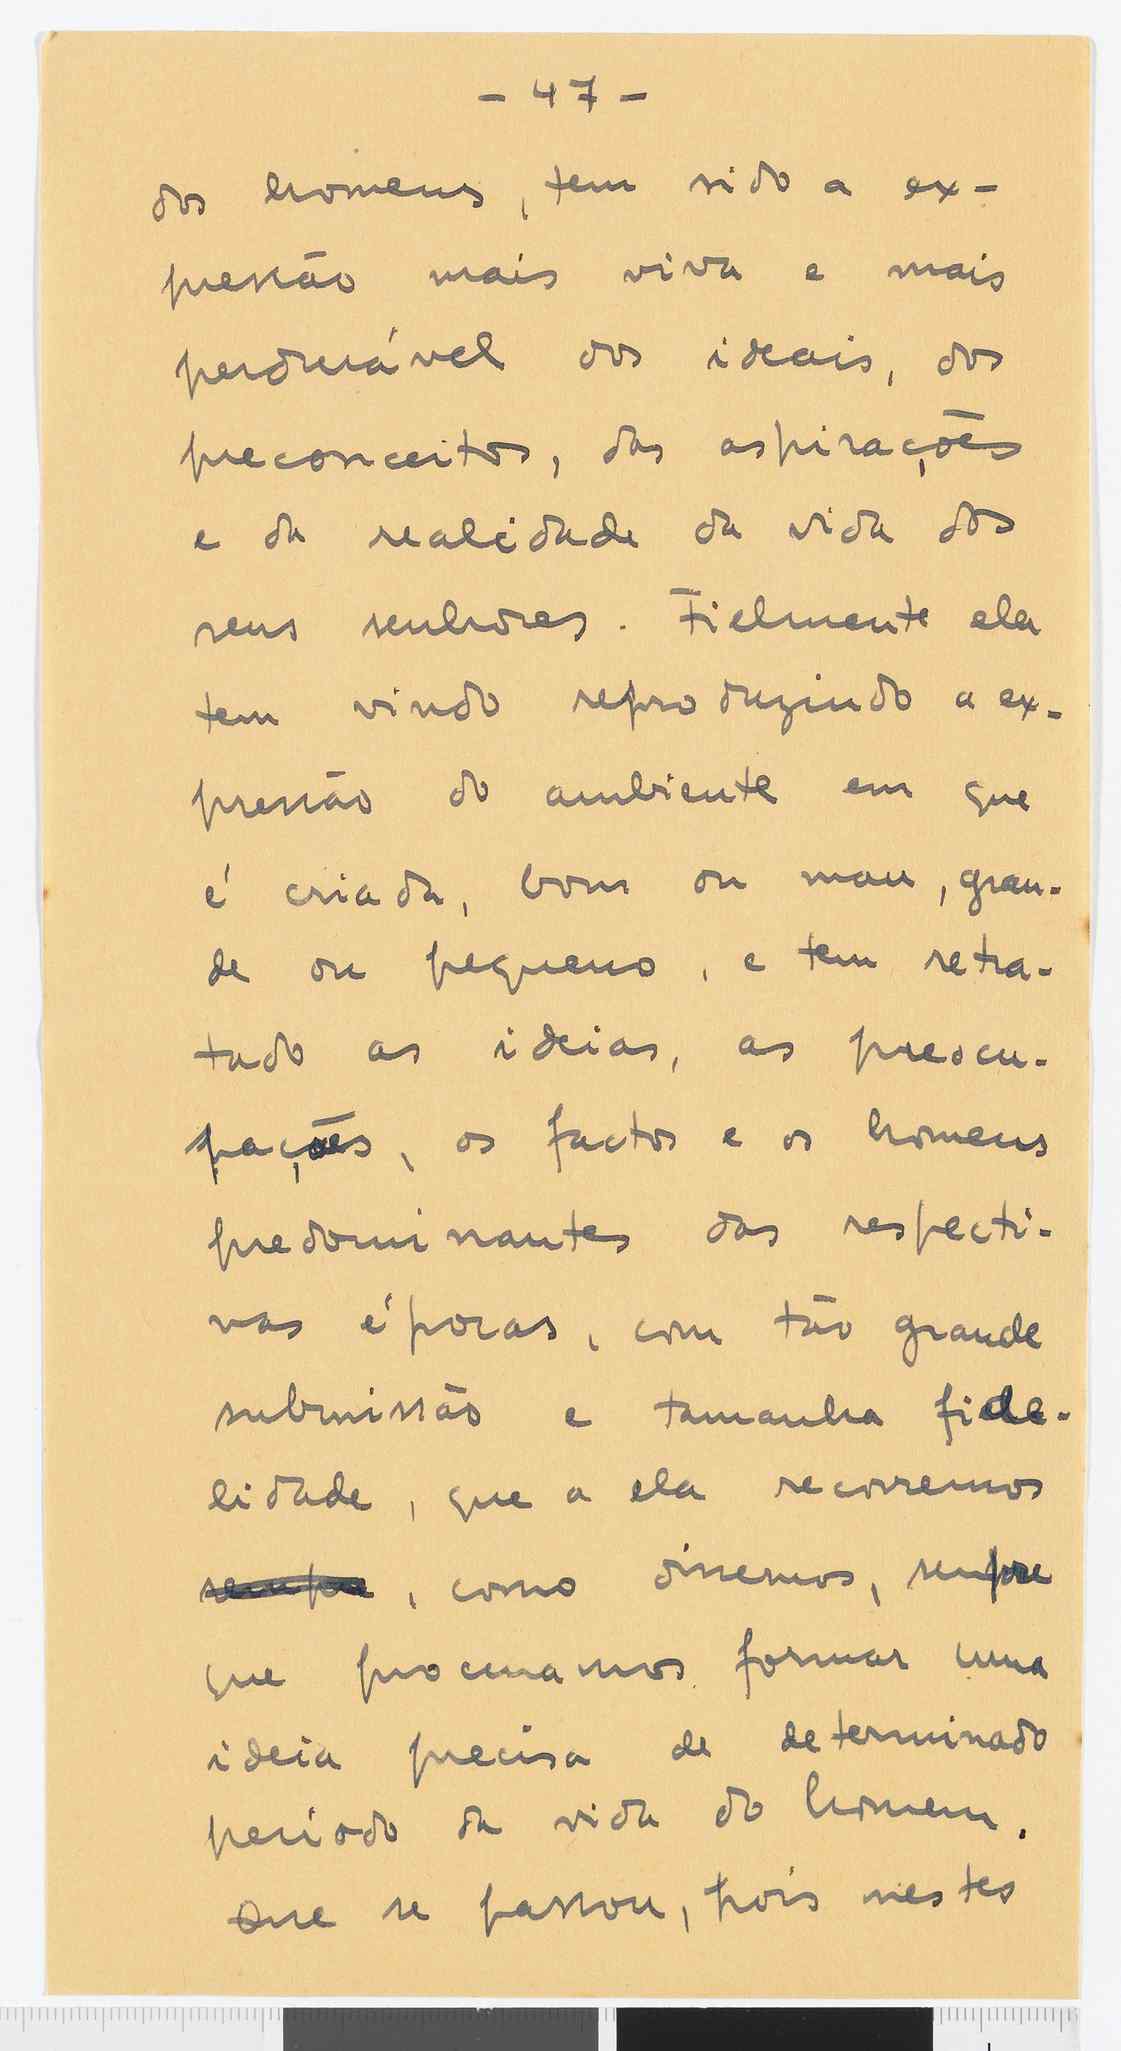 - 47 -
dos homens, tem sido a ex-
pressão mais viva e mais
perdurável dos ideais, dos
preconceitos, das aspirações
e da realidade da vida dos
seus senhores. Fielmente ela
tem vindo reproduzindo a ex-
pressão do ambiente em que
é criada, bom ou mau, gran-
de ou pequeno, e tem retra-
tado as ideias, as preocu-
pações, os factos e os homens
predominantes das respecti-
vas épocas, com tão grande
submissão e tamanha fide-
lidade, que a ela recorremos
sempre, como dissemos, sempre
que procuramos formar uma
ideia precisa de determinado
periodo da vida do homem.
Que se passou, pois nestes